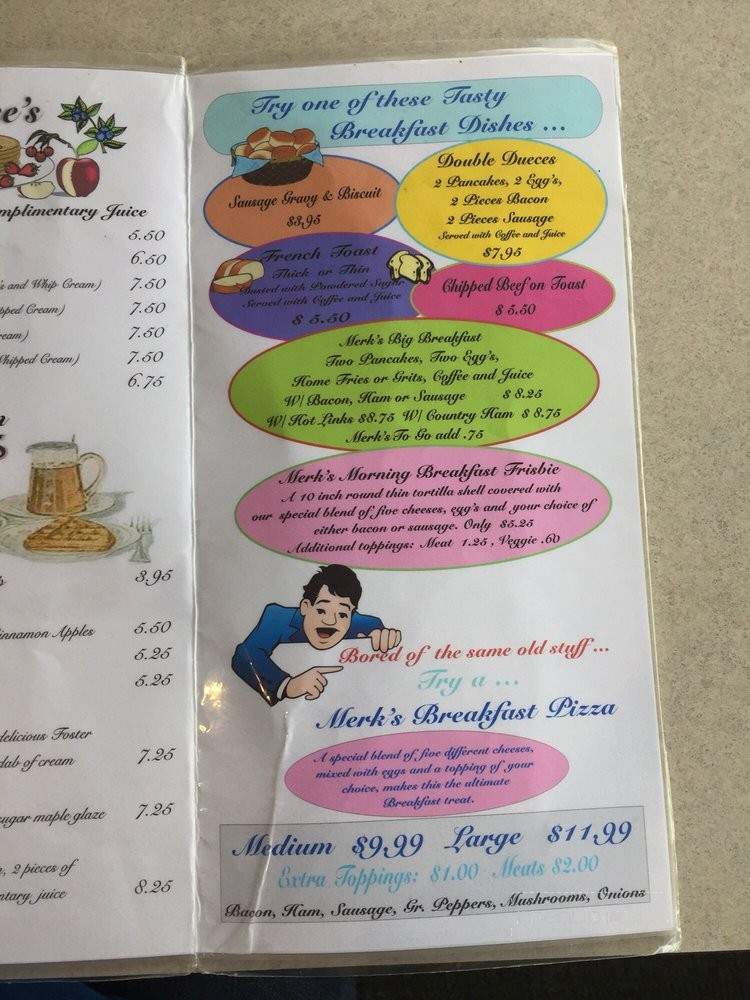 mplimentary Juice
5.50
6.50
and Whip Cream) 7.50
pped Cream) 7.50
ream) 7.50
Whipped Cream) 7.50
6.75
3.95
innamon Apples 5.50
5.25
5.25
delicious Foster
dab of cream 7.25
ugar maple glaze 7.25
, 2 pieces of
ntary juice 8.25
Try one of these Tasty
Breakfast Dishes ...
Sausage Gravy & Biscuit
$3.95
Double Dueces
2 Pancakes, 2 Egg's,
2 Pieces Bacon
2 Pieces Sausage
Served with Coffee and Juice
$7.95
French Toast
Thick or Thin
Dusted with Powdered Sugar
Served with Coffee and Juice
$ 5.50
Chipped Beef on Toast
$ 5.50
Merk's Big Breakfast
Two Pancakes, Two Egg's,
Home Fries or Grits, Coffee and Juice
W/ Bacon, Ham or Sausage $ 8.25
W/ Hot Links $8.75 W/ Country Ham $ 8.75
Merk's To Go add .75
Merk's Morning Breakfast Frisbie
A 10 inch round thin tortilla shell covered with
our special blend of five cheeses, egg's and your choice of
either bacon or sausage. Only $5.25
Additional toppings: Meat 1.25 , Veggie .60
Bored of the same old stuff...
Try a ...
Merk's Breakfast Pizza
A special blend of five different cheeses,
mixed with eggs and a topping of your
choice, makes this the ultimate
Breakfast treat.
Medium $9.99 Large $11.99
Extra Toppings: $1.00 Meats $2.00
Bacon, Ham, Sausage, Gr. Peppers, Mushrooms, Onions